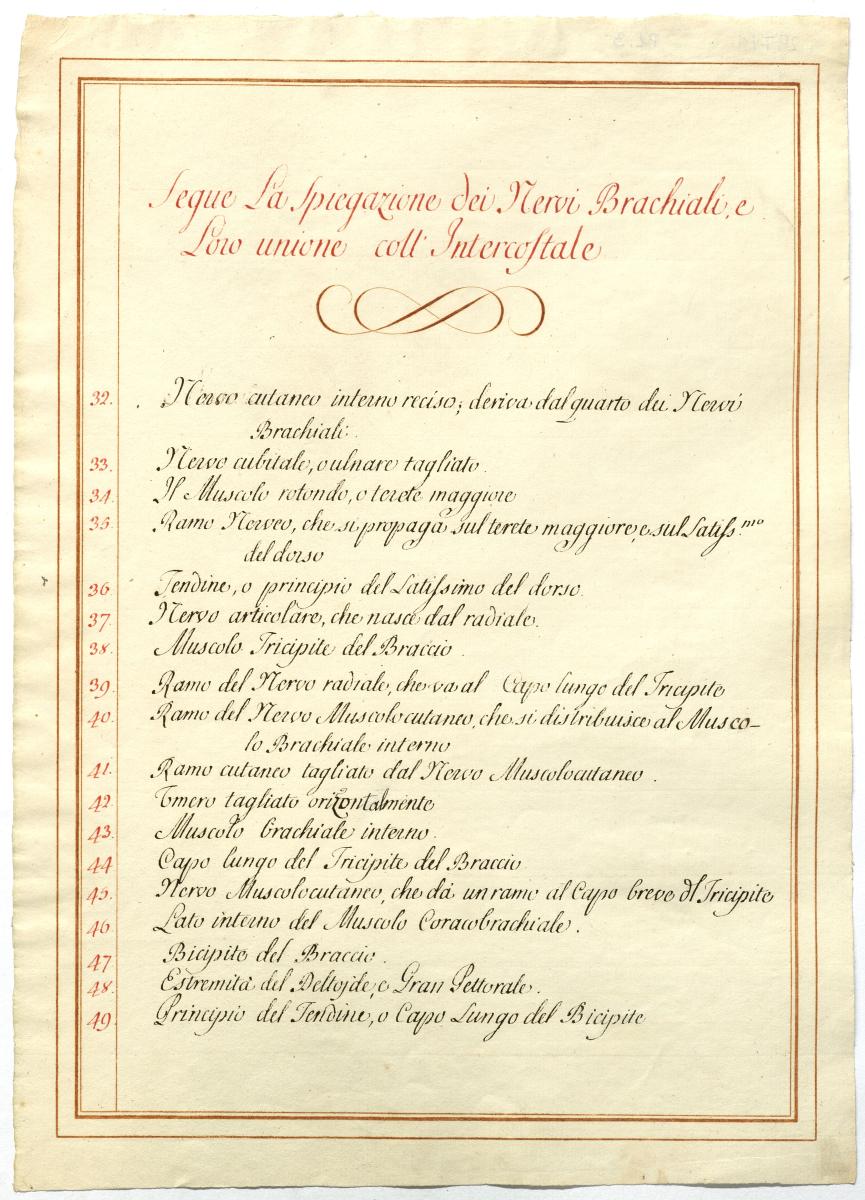 Segue La Spiegazione dei Nervi Brachiali, e
Loro unione coll' Intercostale
32. Nervo cutaneo interno reciso; deriva dal quarto dei Nervi
Brachiali.
33. Nervo cubitale, o ulnare tagliato.
34. Il Muscolo rotondo, o terete maggiore
35. Ramo Nerveo, che si propaga sul terete maggiore, e sul Latiss.mo
del dorso
36. Tendine, o principio del Latissimo del dorso.
37. Nervo articolare, che nasce dal radiale.
38. Muscolo Tricipite del Braccio.
39. Ramo del Nervo radiale, che va al Capo lungo del Tricipite
40. Ramo del Nervo Muscolocutaneo, che si distribuisce al Musco-
lo Brachiale interno
41. Ramo cutaneo tagliato dal Nervo Muscolocutaneo.
42. Omero tagliato orizontalmente
43. Muscolo brachiale interno.
44. Capo lungo del Tricipite del Braccio
45. Nervo Muscolocutaneo, che dà un ramo al Capo breve dl Tricipite
46. Lato interno del Muscolo Coracobrachiale.
47. Bicipite del Braccio.
48. Estremità del Deltojde, e Gran Pettorale.
49. Principio del Tendine, o Capo Lungo del Bicipite